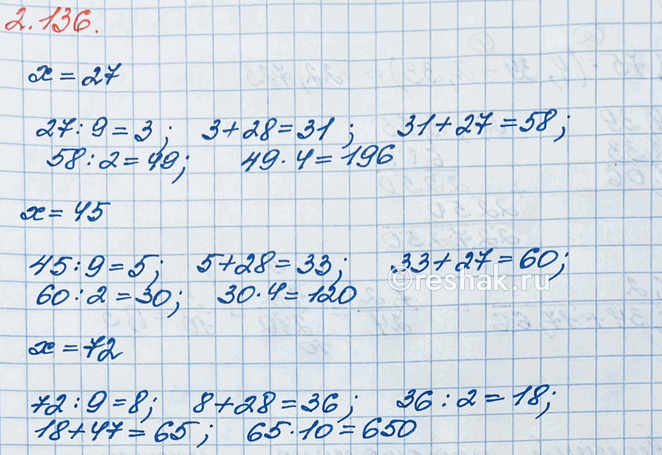 2.136.
x = 27
27 : 9 = 3; 3 + 28 = 31; 31 + 27 = 58;
58 : 2 = 49; 49 · 4 = 196
x = 45
45 : 9 = 5; 5 + 28 = 33; 33 + 27 = 60;
60 : 2 = 30; 30 · 4 = 120
©reshak.ru
x = 72
72 : 9 = 8; 8 + 28 = 36; 36 : 2 = 18;
18 + 47 = 65; 65 · 10 = 650